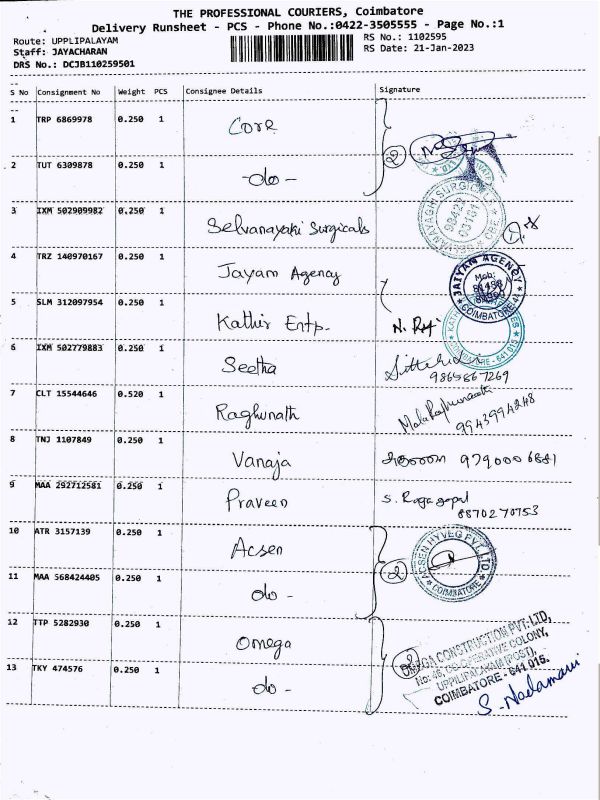 THE PROFESSIONAL COURIERS, Coimbatore
Delivery Runsheet - PCS - Phone No.:0422-3505555 - Page No.:1
Route: UPPLIPALAYAM
RS No.: 1102595
Staff: JAYACHARAN
RS Date: 21-Jan-2023
DRS No.: DCJB110259501
S No Consignment No Weight PCS Consignee Details Signature
1 TRP 6869978 0.250 1 Core
2
2 TUT 6309878 0.250 1 -do-
3 IXM 502909982 0.250 1 Selvanayaki Surgicals
SELVANAYAGHI SURGICALS
CBE
98422
03161
1
4 TRZ 140970167 0.250 1 Jayam Agency
JAIYAM AGENCY
Mob:
COIMBATORE-41
5 SLM 312097954 0.250 1 Kathir Entp. N. Raj
641 015
6 IXM 502779883 0.250 1 Seetha
9865867269
7 CLT 15544646 0.520 1 Raghunath Mala Raghunaath
9943994248
8 TNJ 1107849 0.250 1 Vanaja 9790006881
9 MAA 292712581 0.250 1 Praveen S. Rajagopal
8870270753
10 ATR 3157139 0.250 1 Acsen
ACSEN HYVEG PVT LTD
COIMBATORE
2
11 MAA 568424405 0.250 1 do -
12 TTP 5282930 0.250 1 Omega
2
OMEGA CONSTRUCTION PVT. LTD,
No: 46, CO-OPERATIVE COLONY,
UPPILIPALAYAM (POST),
COIMBATORE - 641 015.
13 TKY 474576 0.250 1 do -